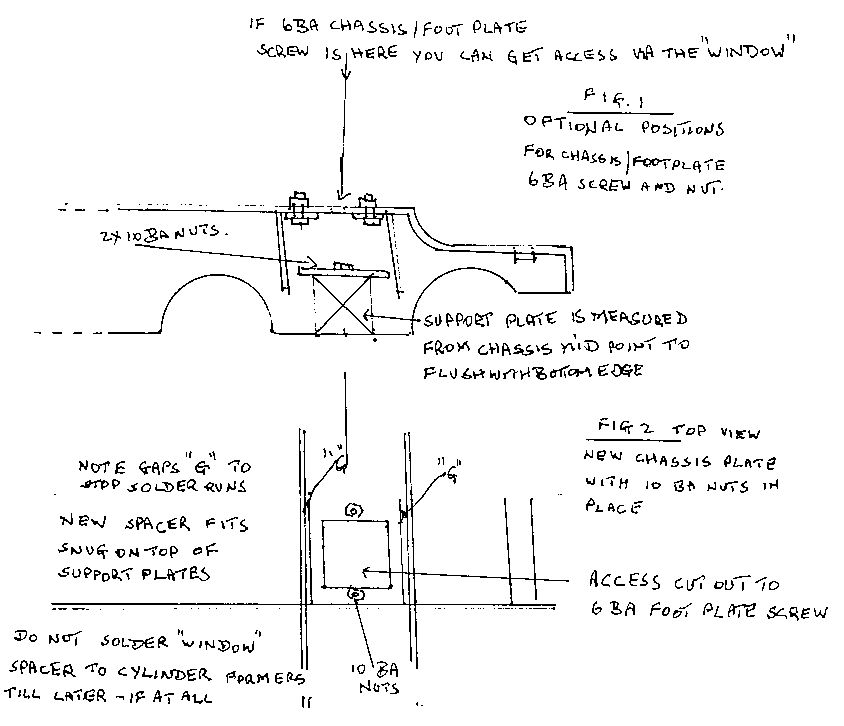 IF 6BA CHASSIS/FOOT PLATE
SCREW IS HERE YOU CAN GET ACCESS VIA THE "WINDOW"
FIG.1
OPTIONAL POSITIONS
FOR CHASSIS/FOOTPLATE
6BA SCREW AND NUT.
2X10BA NUTS.
SUPPORT PLATE IS MEASURED
FROM CHASSIS MID POINT TO
FLUSH WITH BOTTOM EDGE
FIG 2 TOP VIEW
NEW CHASSIS PLATE
WITH 10 BA NUTS IN
PLACE
"G"
"G"
NOTE GAPS "G" TO
STOP SOLDER RUNS
NEW SPACER FITS
SNUG ON TOP OF
SUPPORT PLATES
ACCESS CUT OUT TO
6 BA FOOT PLATE SCREW
DO NOT SOLDER "WINDOW"
SPACER TO CYLINDER FORMERS
TILL LATER - IF AT ALL
10 BA
NUTS